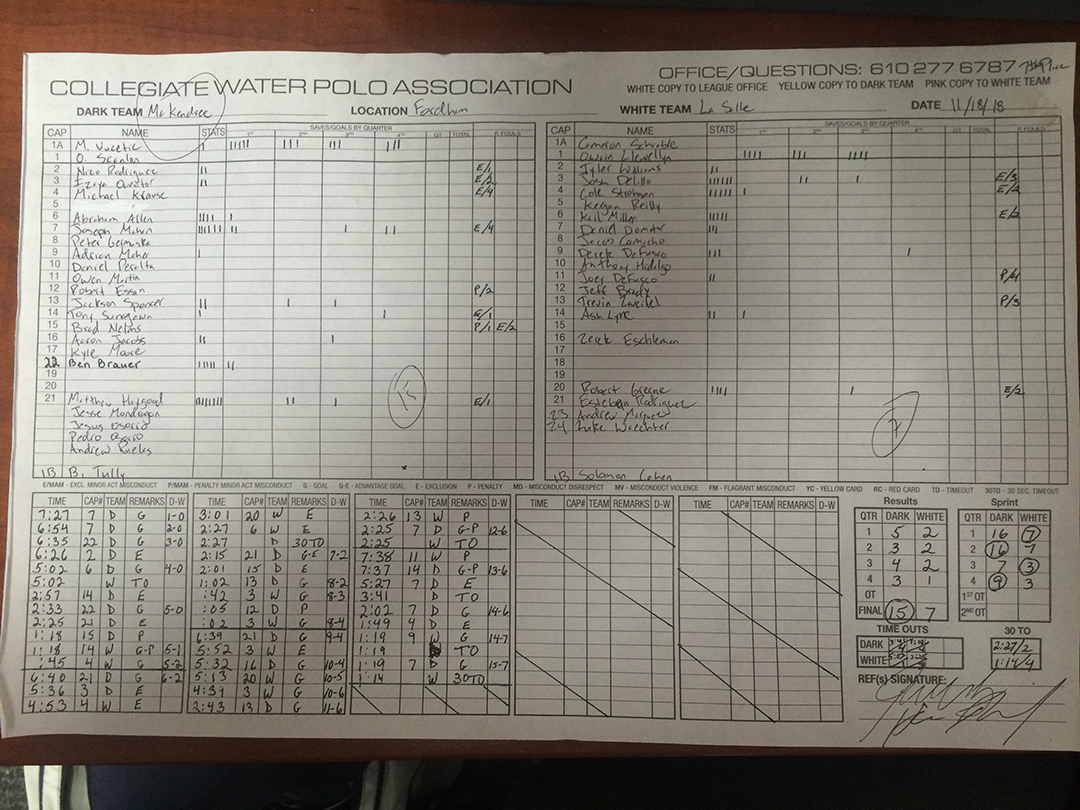 COLLEGIATE WATER POLO ASSOCIATION
OFFICE/QUESTIONS: 610 277 6787 7th Place
WHITE COPY TO LEAGUE OFFICE YELLOW COPY TO DARK TEAM PINK COPY TO WHITE TEAM
DARK TEAM McKendree LOCATION Fordham WHITE TEAM La Salle DATE 11/18/18
CAP NAME STATS SAVES/GOALS BY QUARTER 1ST 2ND 3RD 4TH OT TOTAL P. FOULS
1A M. Vucetic
1 O. Scanlon
2 Nico Rodriguez E/1
3 E/2
4 Michael Krause E/4
5
6 Abraham Allen
7 Joseph E/4
8 Peter
9 Adrian Maher
10 Daniel Peralta
11 Owen Martin
12 Robert Essen P/2
13 Jackson Spencer
14 Tony E/1
15 Brad Nelms P/1 E/2
16 Aaron Jacobs
17 Kyle Moore
22 Ben Brauer
19
20
21 Matthew Hygood E/1
Jesse Mondragon
Jesus Osorio
Pedro Osorio
Andrew Ruelas
15
1B B. Tully
CAP NAME STATS SAVES/GOALS BY QUARTER 1ST 2ND 3RD 4TH OT TOTAL P. FOULS
1A Cameron
1 Owain Llewellyn
2 Tyler Williams
3 Josh DeLillo E/3
4 Cole E/2
5 Keegan Reilly
6 Karl Miller E/2
7 Daniel
8 Jacob Camacho
9 Derek DeFusco
10 Anthony Hidalgo
11 Joey DeFusco P/4
12 Jeff Brady
13 Trevin Zweifel P/3
14 Ash Lyne
15
16 Zeek Eschleman
17
18
19
20 Robert Greene E/2
21 Esteban Rodriguez
23 Andrew Marquez
24 Luke Waechter
7
1B Solomon Cohen
E/MAM - EXCL. MINOR ACT MISCONDUCT P/MAM - PENALTY MINOR ACT MISCONDUCT G - GOAL G-E - ADVANTAGE GOAL E - EXCLUSION P - PENALTY MD - MISCONDUCT DISRESPECT MV - MISCONDUCT VIOLENCE FM - FLAGRANT MISCONDUCT YC - YELLOW CARD RC - RED CARD TO - TIMEOUT 30TO - 30 SEC. TIMEOUT
TIME CAP# TEAM REMARKS D-W
7:27 7 D G 1-0
6:54 7 D G 2-0
6:35 22 D G 3-0
6:26 2 D E
5:02 6 D G 4-0
5:02 W TO
2:57 14 D E
2:33 22 D G 5-0
2:25 21 D E
1:18 15 D P
1:18 14 W G-P 5-1
:45 4 W G 5-2
6:40 21 D G 6-2
5:36 3 D E
4:53 4 W E
TIME CAP# TEAM REMARKS D-W
3:01 20 W E
2:27 6 W E
2:27 D 30TO
2:15 21 D G-E 7-2
2:01 15 D E
1:02 13 D G 8-2
:42 3 W G 8-3
:05 12 D P
:02 3 W G 8-4
6:39 21 D G 9-4
5:52 3 W E
5:32 16 D G 10-4
5:13 20 W G 10-5
4:31 3 W G 10-6
2:43 13 D G 11-6
TIME CAP# TEAM REMARKS D-W
2:26 13 W P
2:25 7 D G-P 12-6
2:25 W TO
7:38 11 W P
7:37 14 D G-P 13-6
5:27 7 D E
3:41 D TO
2:02 7 D G 14-6
1:49 4 D E
1:19 9 W G 14-7
1:19 TO
1:19 7 D G 15-7
1:14 W 30TO
TIME CAP# TEAM REMARKS D-W
TIME CAP# TEAM REMARKS D-W
Results
QTR DARK WHITE
1 5 2
2 3 2
3 4 2
4 3 1
OT
FINAL 15 7
Sprint
QTR DARK WHITE
1 16 7
2 16 7
3 7 3
4 9 3
1ST OT
2ND OT
TIME OUTS
DARK
WHITE
30 TO
2:27/2
1:14/4
REF(s) SIGNATURE: